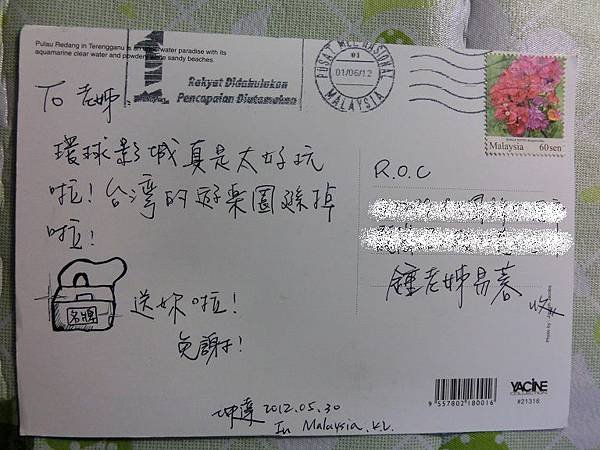 Pulau Redang in Terengganu is an underwater paradise with its
aquamarine clear water and powdery white sandy beaches.
Rakyat Didahulukan
Pencapaian Diutamakan
PUSAT MEL NASIONAL
01
01/06/12
MALAYSIA
Malaysia 60sen
To 老師:
環球影城真是太好玩
啦!台灣的遊樂園遜掉
啦!
名牌
送妳啦!
免謝了!
坤達 2012.05.30
In Malaysia. K.L.
R.O.C
鍾老師易蓉 收
Photo by
9 557802 180016
YACINE
#21316